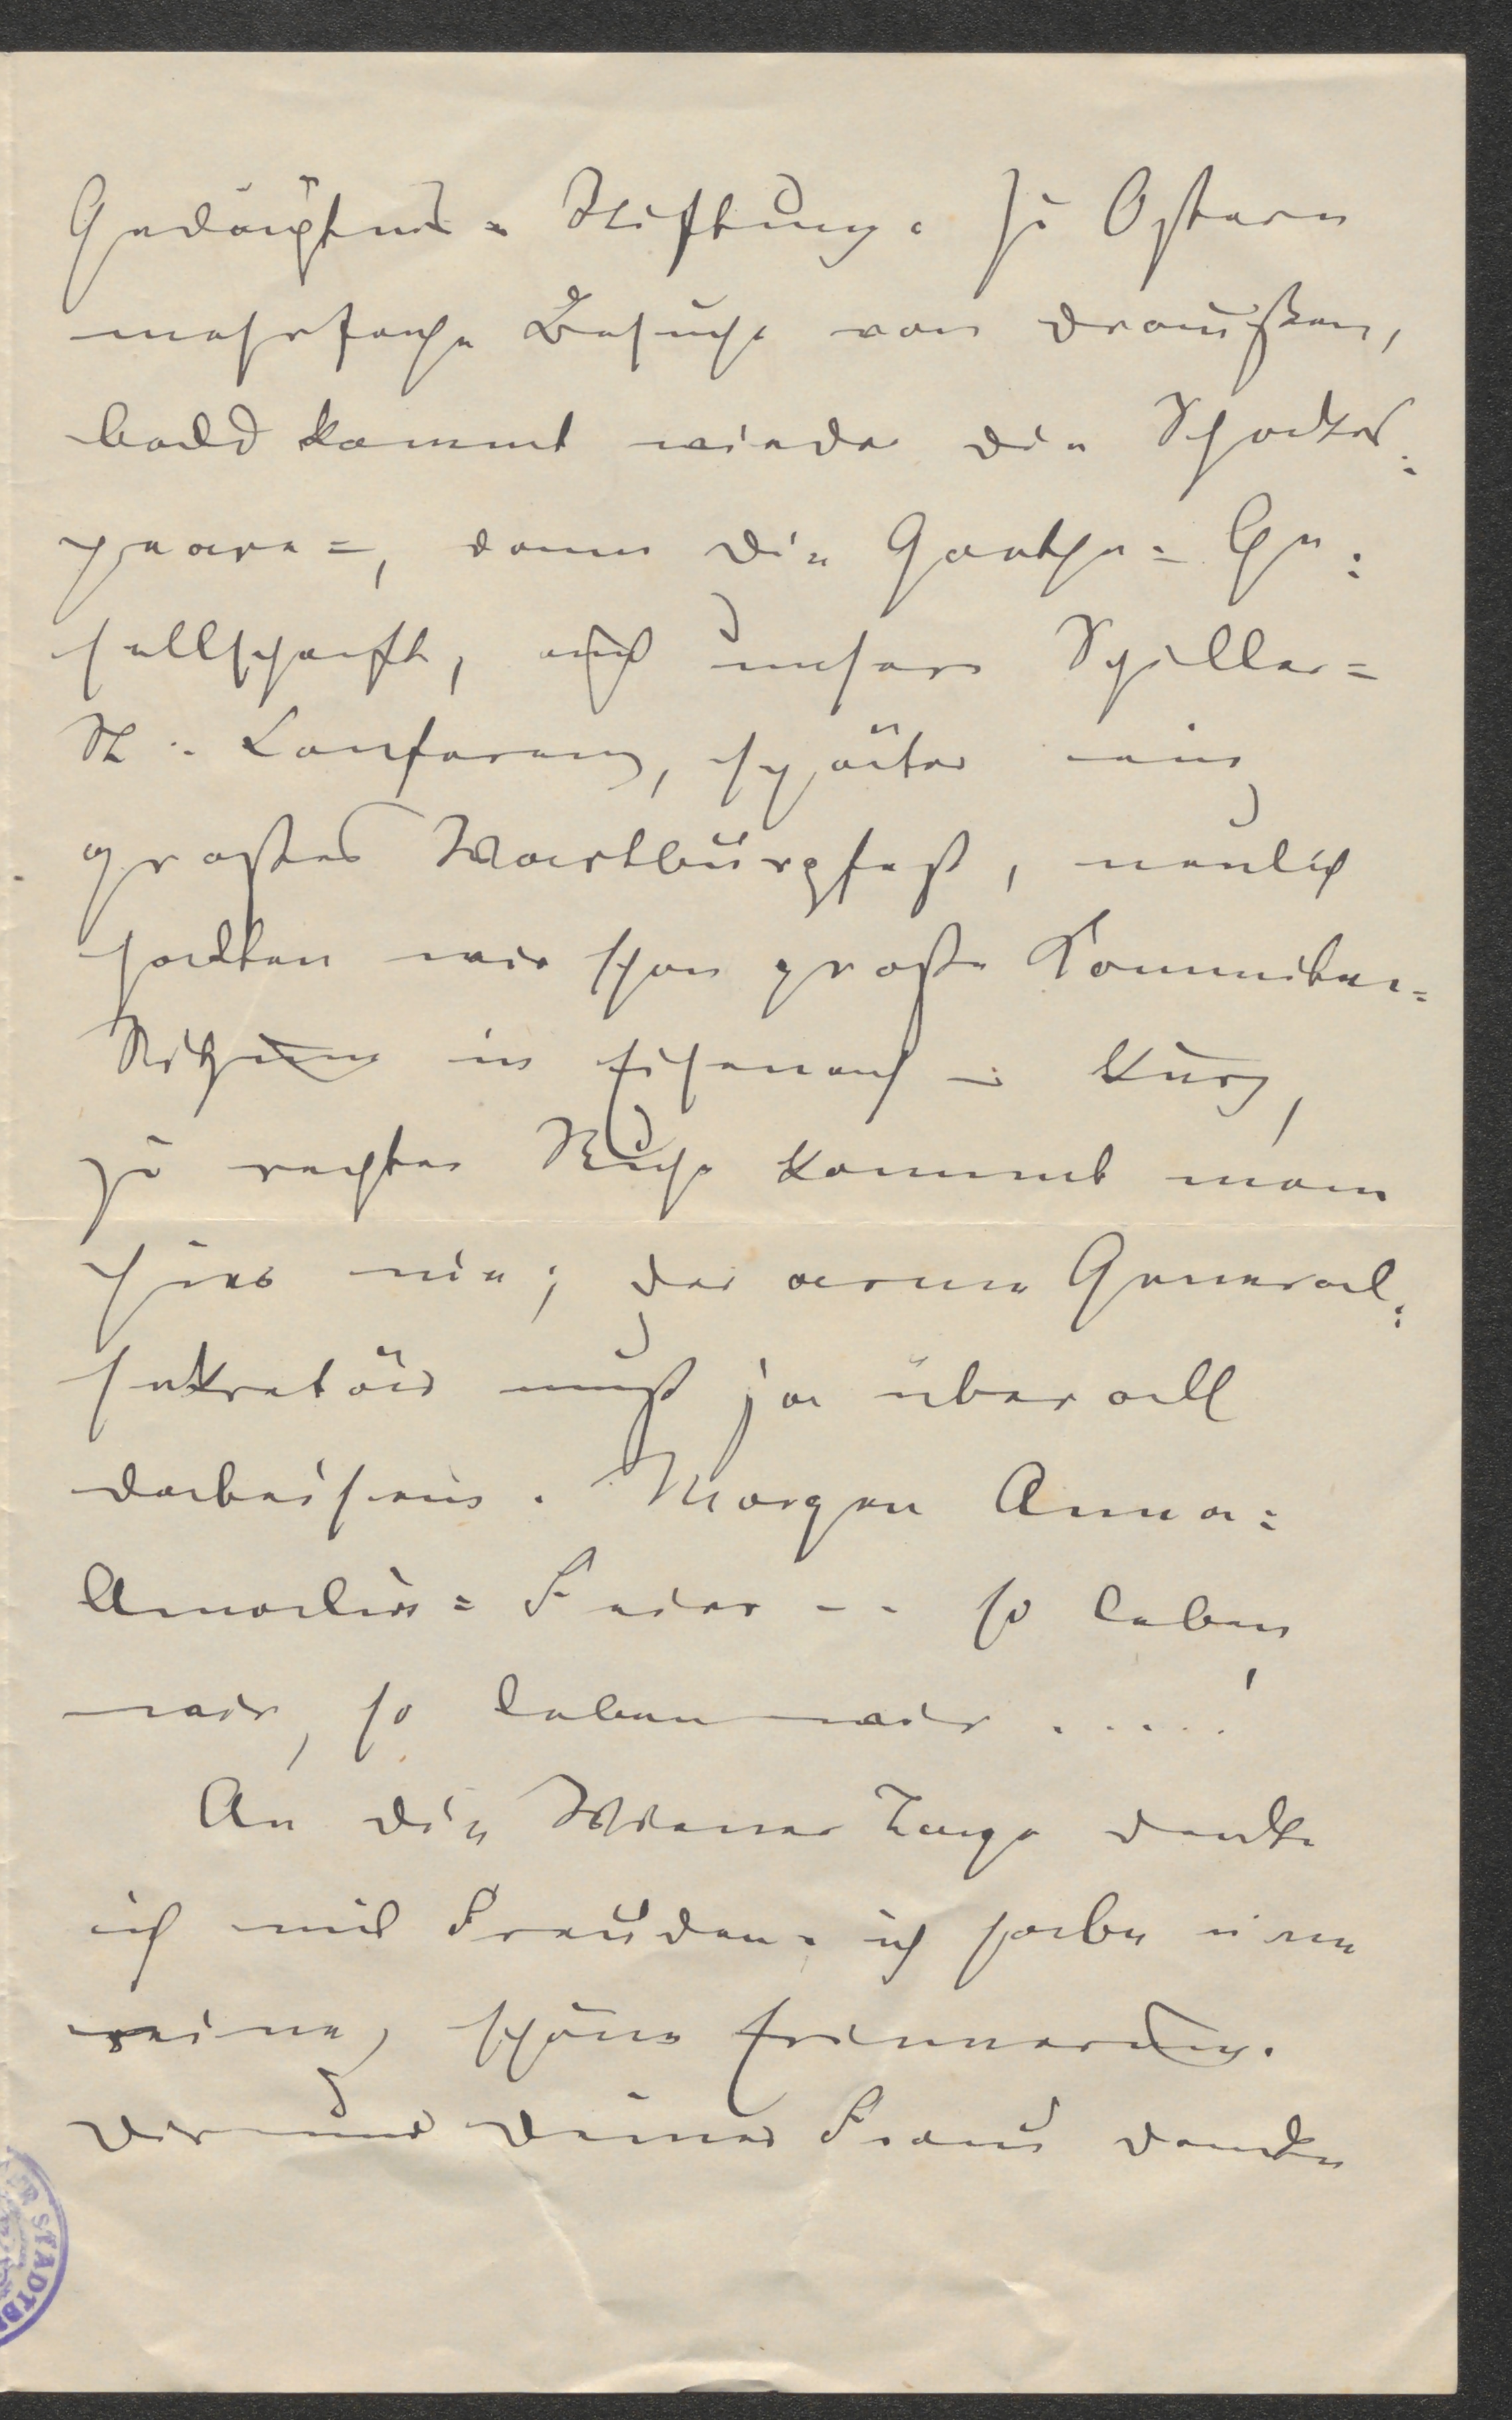 Gedächtnis-Stiftung. Zu Ostern
mehrfache Besuche von draußen,
bald kommt wieder die Shakes-
peare-, dann die Goethe-Ge-
sellschaft, auch unsere Schiller-
St.-Conferenz, später ein
großes Wartburgfest, neulich
hatten wir schon große Kommitee-
Sitzung in Eisenach – kurz,
zu rechter Ruhe kommt man
hier nie; der arme General-
sekretär muß ja überall
dabeisein. Morgen Anna-
Amalia-Feier -- so leben
wir, so leben wir .....!
An die Wiener Tage denke
ich mit Freuden. ich habe eine
reine, schöne Erinnerung.
Dir und Deiner Frau danke
STADTB